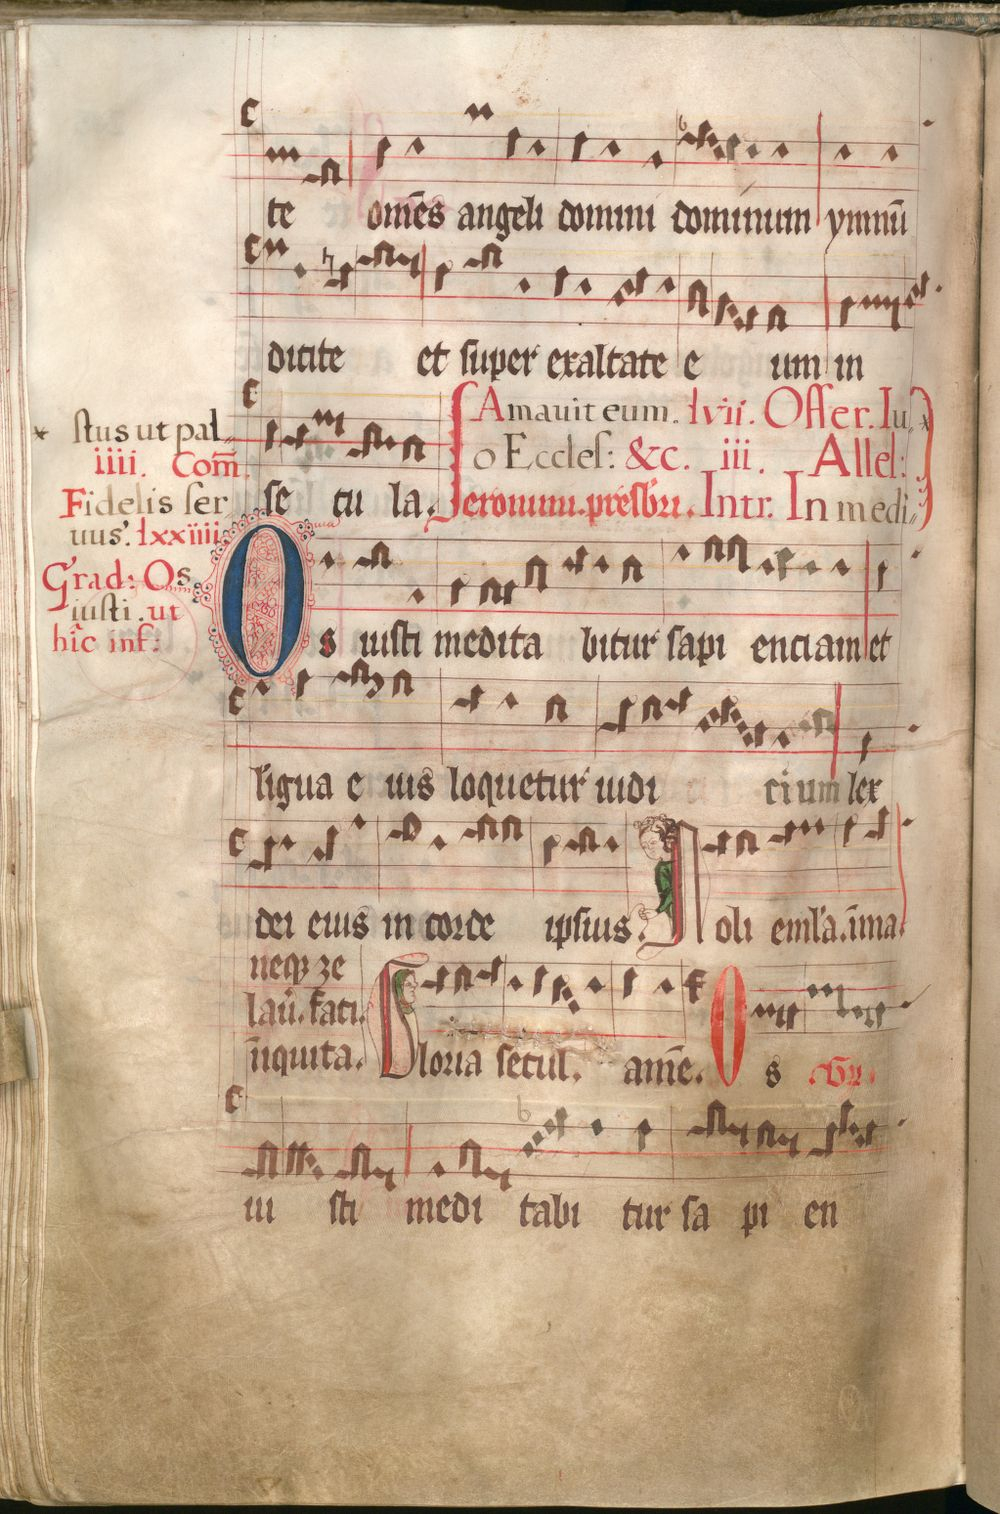 te omēs angeli domini dominum ymnū
dicite et super exaltate e um in
Amauit eum. lvii. Offer. Iu,,
o Eccles: &c. iii. Allel:
se cu la. Jeronimi. presbri. Intr: In medi,,
stus ut pal,,
iiii. Com̄.
Fidelis ser
uus. lxxiiii.
Grad: Os
iusti. ut
hic inf:
Os iusti medita bitur sapi enciam et
ligua e ius loquetur iudi ci um lex
dei eius in corde ipsius. Noli emla. ī ma
neqz ze
lau. faci.
īiquita. Gloria secul. amē. Os
iu sti medi tabi tur sa pi en